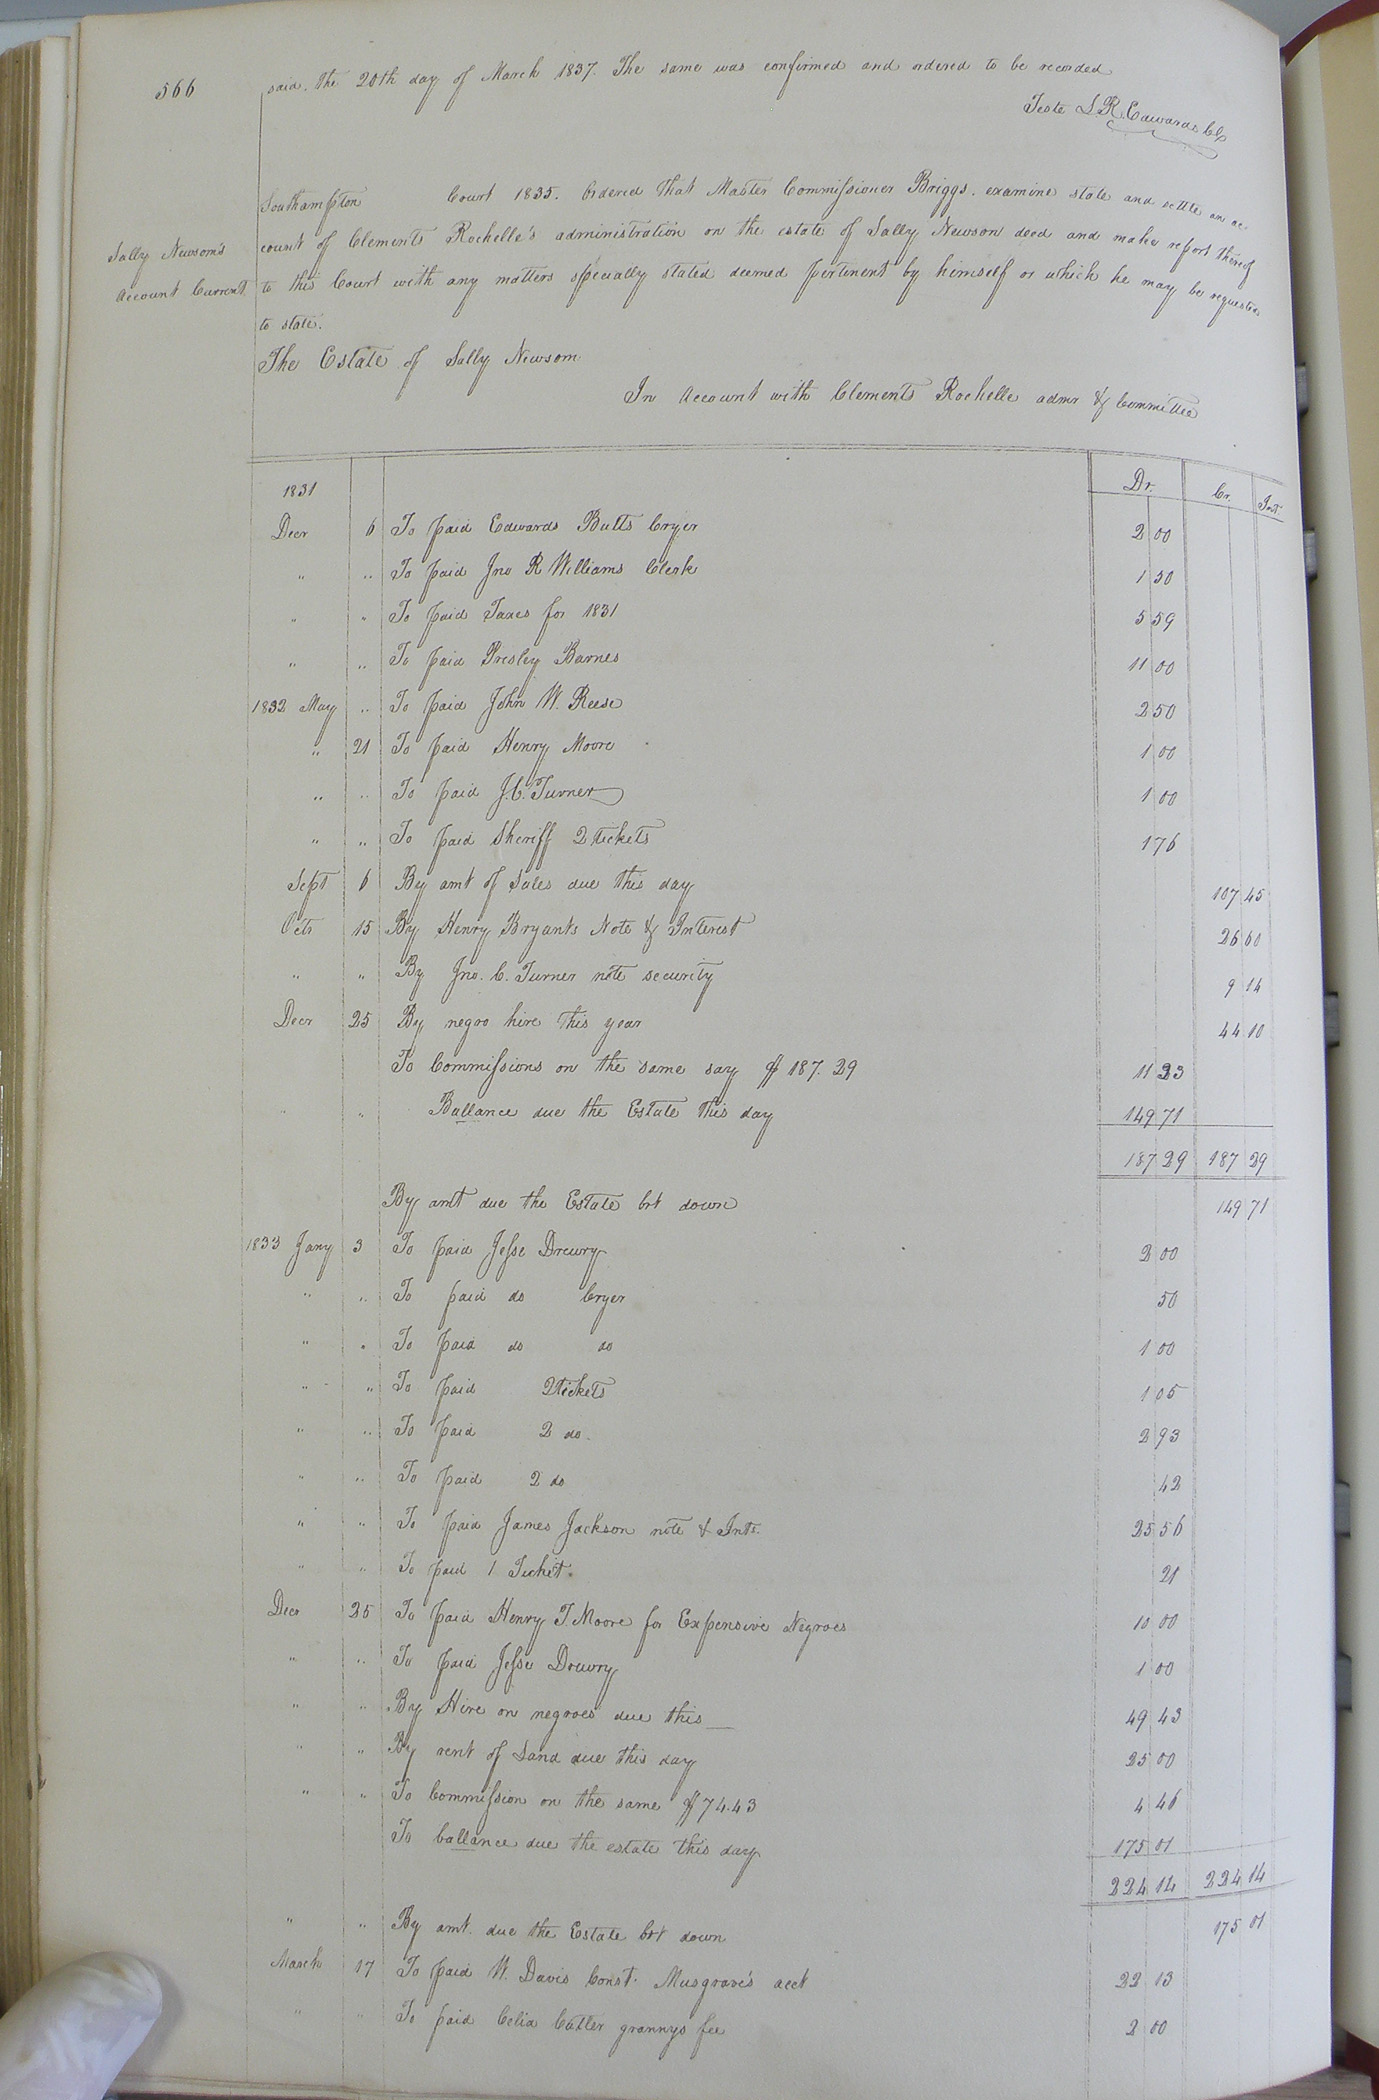 566
said. the 20th day of March 1837. The same was confirmed and ordered to be recorded
Teste L R Edwards Clk
Sally Newsom's
Account Current
Southampton Court 1835. Ordered that Master Commissioner Briggs. examine state and settle an ac
count of Clements Rochelle's administration on the estate of Sally Newson deed and make report thereof
to this Court with any matters specially stated deemed pertinent by himself or which he may be requested
to state.
The Estate of Sally Newsom
In Account with Clements Rochelle admr & Committee
Dr. Cr. Int
1831
Decr 6 To paid Edwards Butts Cryer 2 00
" " To paid Jno R Williams Clerk 1 50
" " To paid Taxes for 1831 5 59
" " To paid Presley Barnes 11 00
1832 May " To paid John W. Reese 2 50
" 21 To paid Henry Moore 1 00
" " To paid J. C. Turner 1 00
" " To paid Sheriff 2 tickets 1 76
Sept 6 By amt of Sales due this day 107 45
Octr 15 By Henry Bryants Note & Interest 26 60
" " By Jno. C. Turner note security 9 14
Decr 25 By negro hire this year 44 10
To Commissions on the same say $187.29 11 23
" " Ballance due the Estate this day 149 71
187 29 187 29
By amt due the Estate brt down 149 71
1833 Jany 3 To paid Jesse Drewry 2 00
" " To paid do Cryer 50
" " To paid do do 1 00
" " To paid 2 tickets 1 05
" " To paid 2 do. 2 93
" " To paid 2 do 42
" " To paid James Jackson note & Intr. 25 56
" " To paid 1 Ticket. 21
Decr 25 To paid Henry T Moore for Expensive Negroes 10 00
" " To paid Jesse Drewry 1 00
" " By Hire on negroes due this 49 43
" " By rent of Land due this day 25 00
" " To Commission on the same $74.43 4 46
To ballance due the estate this day 175 01
224 14 224 14
" " By amt. due the Estate brt down 175 01
March 17 To paid W. Davis Const. Musgrave's acct 22 13
" " To paid Celia Cutler grannys fee 2 00